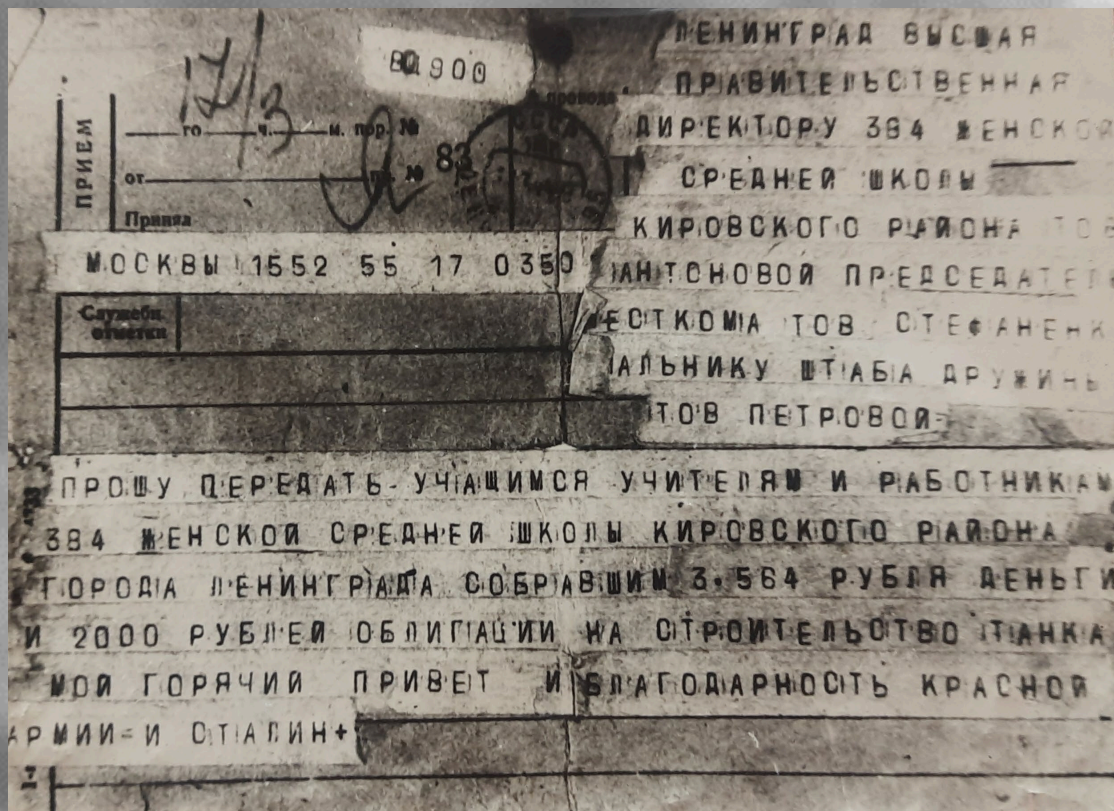 17/3
ВЩ900
провода
ПРИЕМ
го ч. м. пор. №
от № 83
Принял
МОСКВЫ 1552 55 17 0350
Служебн.
отметки
ЛЕНИНГРАД ВЫСШАЯ
ПРАВИТЕЛЬСТВЕННАЯ
ДИРЕКТОРУ 384 ЖЕНСКОЙ
СРЕДНЕЙ ШКОЛЫ
КИРОВСКОГО РАЙОНА ТОВ
АНТОНОВОЙ ПРЕДСЕДАТЕЛ
ЕСТКОМА ТОВ СТЕФАНЕНК
АЛЬНИКУ ШТАБА ДРУЖИНЫ
ТОВ ПЕТРОВОЙ-
ПРОШУ ПЕРЕДАТЬ- УЧАЩИМСЯ УЧИТЕЛЯМ И РАБОТНИКАМ
384 ЖЕНСКОЙ СРЕДНЕЙ ШКОЛЫ КИРОВСКОГО РАЙОНА
ГОРОДА ЛЕНИНГРАДА СОБРАВШИМ 3.564 РУБЛЯ ДЕНЬГИ
И 2000 РУБЛЕЙ ОБЛИГАЦИИ НА СТРОИТЕЛЬСТВО ТАНКА
МОЙ ГОРЯЧИЙ ПРИВЕТ И БЛАГОДАРНОСТЬ КРАСНОЙ
АРМИИ=И СТАЛИН+